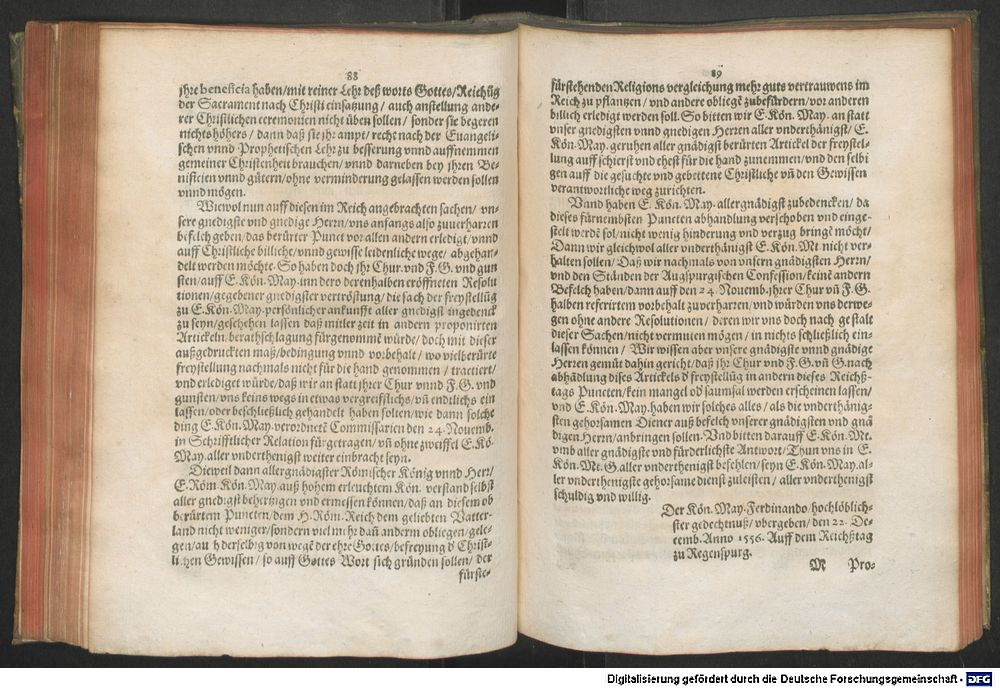 88
jhre beneficia haben/mit reiner Lehr deß worts Gottes/Reichũg
der Sacrament nach Christi einsatzung/ auch anstellung ande-
rer Christlichen ceremonien nicht üben sollen/ sonder sie begeren
nichts höhers/ dann daß sie jhr ampt/ recht nach der Euangeli-
schen vnnd Prophetischen Lehr zu besserung vnnd auffnemmen
gemeiner Christenheit brauchen/ vnnd darneben bey jhren Be-
nificien vnnd gütern/ohne verminderung gelassen werden sollen
vnnd mögen.
Wiewol nun auff diesen im Reich angebrachten sachen/ vn-
sere gnedigste vnd gnedige Herrn/vns anfangs also zuuerharren
befelch geben/das berürter Punct vor allen andern erlediget/vnnd
auff Christliche billiche/vnnd gewisse leidenliche wege/ abgehan-
delt werden möchte. So haben doch jhr Chur.vnd F.G. vnd gun
sten/auff E.Kön.May.inn dero derenhalben eröffneten Resolu
tionen/gegebener gnedigster vertröstung/die sach der freystellũg
zu E.Kön.May.persönlicher ankunfft aller gnedigst ingedenck
zu seyn/geschehen lassen daß mitler zeit in andern proponirten
Artickeln/berathschlagung fürgenommẽ würde/doch mit dieser
außgedruckten maß/bedingung vnnd vorbehalt/ wo vielberürte
freystellung nachmals nicht für die hand genommen/ tractiert/
vnd erlediget würde/daß wir an statt jhrer Chur vnnd F.G. vnd
gunsten/vns keins wegs in etwas vergreifflichs/vñ endtlichs ein
lassen/oder beschließlich gehandelt haben solten/wie dann solche
ding E.Kön.May.verordnetẽ Commissarien den 24.Nouemb.
in Schrifftlicher Relation fürgetragen/ vñ ohne zweiffel E.Kö.
May.aller vnderthenigst weiter einbracht seyn.
Dieweil dann allergnädigster Römischer König vnnd Herr/
E.Röm.Kön.May.auß hohem erleuchtem Kön. verstand selbst
aller gnedigst behertzigen vnd ermessen können/daß an diesem ob
berürtem Puncten/dem H.Röm.Reich dem geliebten Vatter-
land nicht weniger/sondern viel mehr dañ anderm obliegen/gele-
gen/auch derselbig von wegẽ der ehre Gottes/befreyung d Christ-
lichen Gewissen/ so auff Gottes Wort sich gründen sollen/ der
fürste-
89
fürstehenden Religions vergleichung mehr guts vertrauwens im
Reich zu pflantzen/ vnd andere obliegẽ zubefürdern/vor anderen
billich erledigt werden soll. So bitten wir E.Kön. May. an statt
vnser gnedigsten vnnd gnedigen Herren aller vnderthänigst/ E.
Kön.May. geruhen aller gnädigst berürten Artickel der freystel-
lung auff schierst vnd ehest für die hand zunemmen/vnd den selbi
gen auff die gesuchte vnd gebettene Christliche vñ den Gewissen
verantwortliche weg zurichten.
Vnnd haben E. Kön. May. allergnädigst zubedencken/ da
dieses fürnembsten Puncten abhandlung verschoben vnd einge-
stelt werdẽ sol/ nicht wenig hinderung vnd verzug bringẽ möcht/
Dann wir gleichwol aller vnderthänigst E.Kön. Mt nicht ver-
halten sollen/ Daß wir nachmals von vnsern gnädigsten Herrn/
vnd den Ständen der Augspurgischen Confession/keinẽ andern
Befelch haben/dann auff den 24. Nouemb.jhrer Chur vñ F.G.
halben referirtem vorbehalt zuverharren/ vnd würden vns derwe-
gen ohne andere Resolutionen/ deren wir vns doch nach gestalt
dieser Sachen/nicht vermuten mögen/ in nichts schließlich ein-
lassen können/ Wir wissen aber vnsere gnädigste vnnd gnädige
Herren gemüt dahin gericht/daß jhr Chur vnd F.G.vñ G.nach
abhãdlung dises Artickels d freystellũg in andern dieses Reichß-
tags Puncten/kein mangel oď saumsal werden erscheinen lassen/
vnd E.Kön.May.haben wir solches alles/ als die vnderthänig-
sten gehorsamen Diener auß befelch vnserer gnädigsten vnd gnä
digen Herrn/anbringen sollen. Vnd bitten darauff E.Kön.Mt.
vmb aller gnädigste vnd fürderlichste Antwort/Thun vns in E.
Kön.Mt.G.aller vnderthenigst befehlen/seyn E.Kön.May.al-
ler vnderthenigste gehorsame dienst zuleisten/ aller vnderthenigst
schuldig vnd willig.
Der Kön. May. Ferdinando/hochlöblich-
ster gedechtnuß/ vbergeben/ den 22. De-
cemb.Anno 1556. Auff dem Reichßtag
zu Regenspurg.
M Pro-
Digitalisierung gefördert durch die Deutsche Forschungsgemeinschaft - DFG